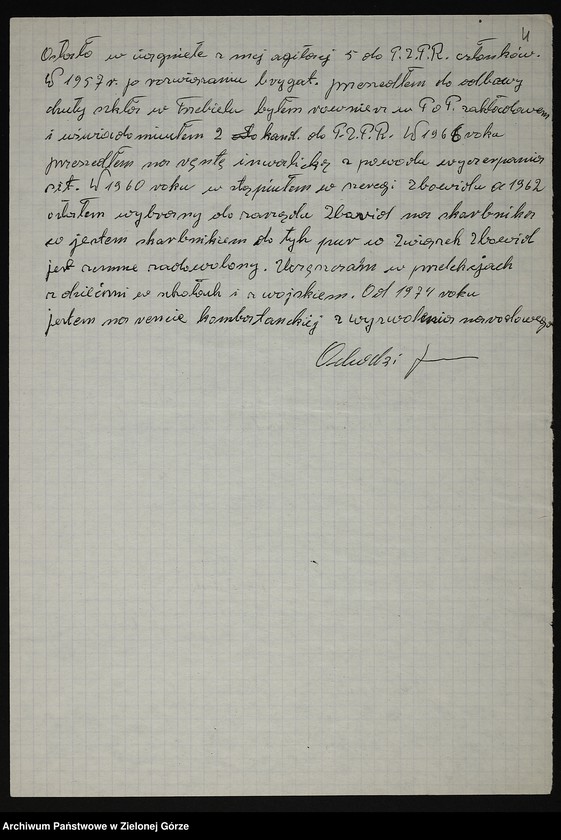 4
Ostało w ciągniete z mej agitacji 5 do P.Z.P.R. członków.
W 1957 r. po rozwiązaniu brygat. przeszedłem do odbawy
chuty szkła w Trebielu byłem rownierz w P O P. zakładowem
i uświadomiułem 2 kand. do P.Z.P.R. W 1966 roku
przeszedłem na rętę inwalicką z powodu wyczerpania
sił. W 1960 roku w stąpiułem w szeregi Zbowidu a 1962
ostałem wybrany do zarządu Zbowid na skarbnika
w jestem skarbnikiem do tyh pur w Związek Zbowid
jest zemne zadowolony. Uczęszczałm w prelekcjach
z dziećmi w szkołach i z wojskiem. Od 1974 roku
jestem na rencie kombotanckiej z wyzwolenia narodowego